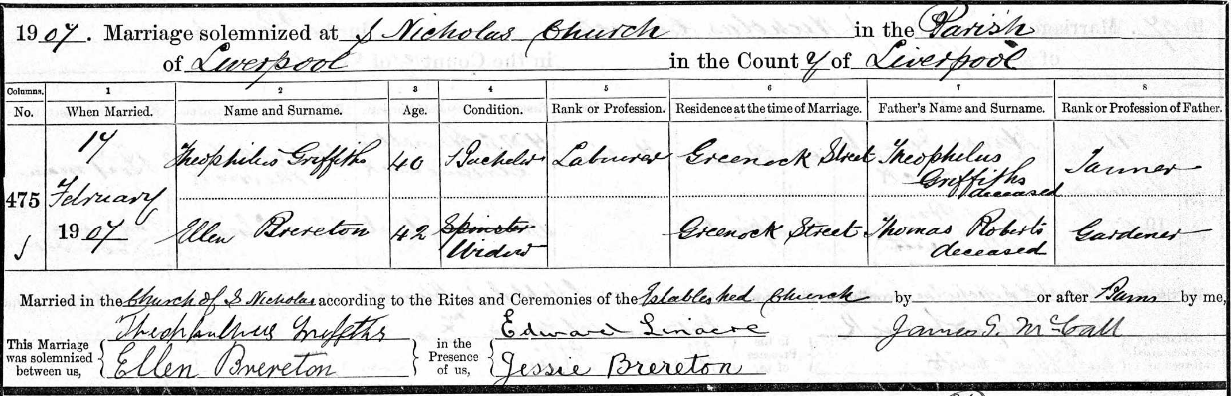 1907. Marriage solemnized at S Nicholas Church in the Parish
of Liverpool in the County of Liverpool
Columns. 1 2 3 4 5 6 7 8
No. When Married. Name and Surname. Age. Condition. Rank or Profession. Residence at the time of Marriage. Father's Name and Surname. Rank or Profession of Father.
475
17 February 1907
Theophilus Griffiths 40 Bachelor Labourer Greenock Street Theophilus Griffiths deceased Tanner
Ellen Brereton 42 Spinster Widow Greenock Street Thomas Roberts deceased Gardener
Married in the Church of S Nicholas according to the Rites and Ceremonies of the Established Church by or after Banns by me,
This Marriage was solemnized between us,
Theophilus Griffiths
Ellen Brereton
in the Presence of us,
Edward Linacre
Jessie Brereton
James S. McCall